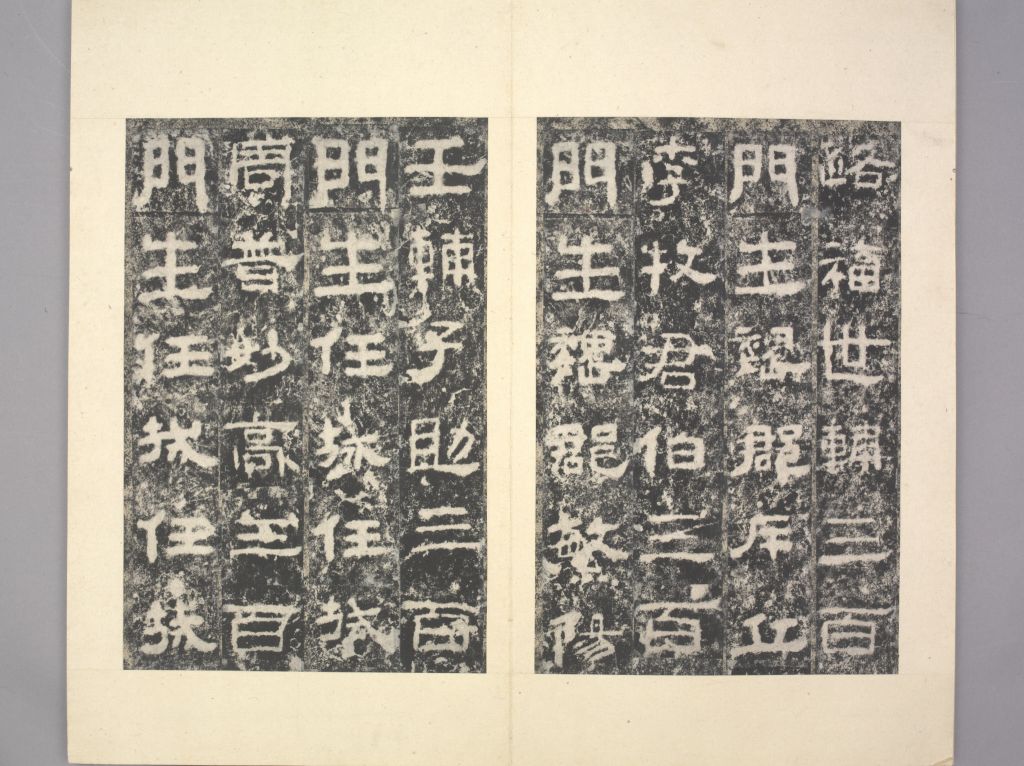 路福世輔三百
門生魏郡斥丘
李牧君伯三百
門生魏郡繁陽
王輔子助三百
門生任城任城
周普妙高三百
門生任城任城